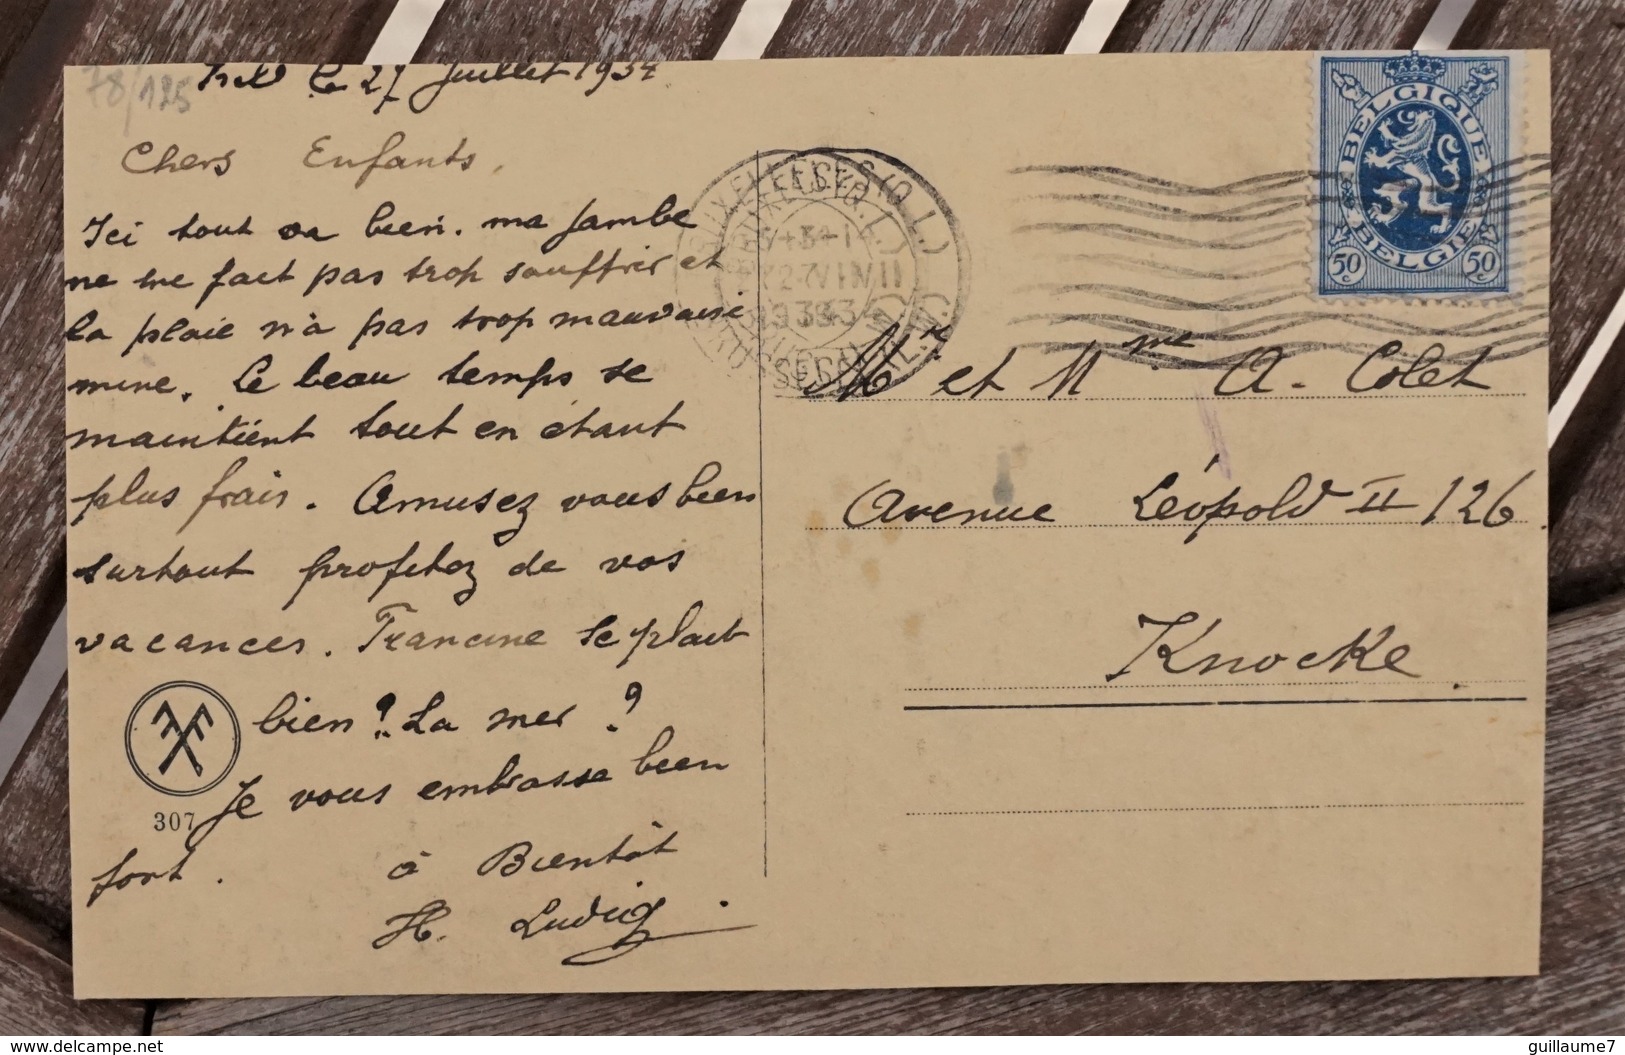 78/125
le 27 Juillet 1934
Chers Enfants,
Ici tout va bien. ma jambe
ne me fait pas trop souffrir et
la plaie n'à pas trop mauvaise
mine. Le beau temps se
maintient tout en étant
plus frais. Amusez vous bien
surtout profitez de vos
vacances. Francine se plait
bien? La mer?
Je vous embrasse bien
fort.
à Bientôt
H. Ludwig
307
BELGIQUE
BELGIË
50 c
50 c
Mr et Mme A. Colet
Avenue Léopold II 126
Knocke.
www.delcampe.net
guillaume7